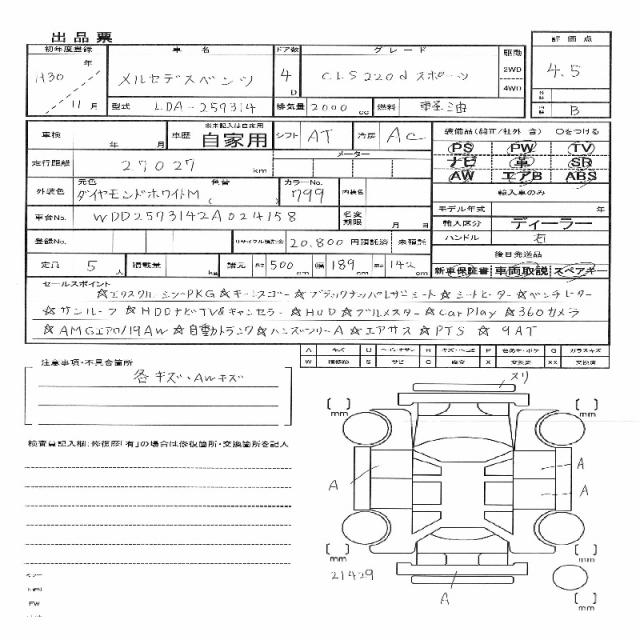 出品票
初年度登録 車名 ドア数 グレード 駆動 評価点
H30年 11月 メルセデスベンツ 4D CLS220d スポーツ 2WD 4WD 4.5
型式 LDA-257314 排気量 2000cc 燃料 軽油 B
車検 年 月 車歴 ※未記入は自家用 自家用 シフト AT 冷房 AC
装備品(純正/社外 含) ○をつける
PS PW TV
走行距離 27027 km メーター
ナビ 革 SR
AW エアB ABS
外装色 元色 ダイヤモンドホワイトM 色替 カラーNo. 799 内装色
輸入車のみ
車台No. WDD2573142A024158 名変期限 月 日
モデル年式 年
輸入区分 ディーラー
登録No. リサイクル預託金 20,800円 預託済 未預託
ハンドル 右
後日発送品
定員 5人 積載量 kg 諸元 長さ 500cm 幅 189cm 高さ 142cm
新車保証書 車両取説 スペアキー
セールスポイント
☆エクスクルーシブPKG☆キーレスゴー☆ブラックナッパレザーシート☆シートヒーター☆ベンチヒーター
☆サンルーフ☆HDDナビTV&キャンセラー☆HUD☆ブルメスター☆CarPlay☆360カメラ
☆AMGエアロ/19AW☆自動トランク☆ハンズフリーA☆エアサス☆PTS☆9AT
注意事項・不具合箇所
各キズ・AWキズ
検査員記入欄:修復歴「有」の場合は修復箇所・交換箇所を記入
スリ
mm mm
A A
A
mm mm
21429
A
mm